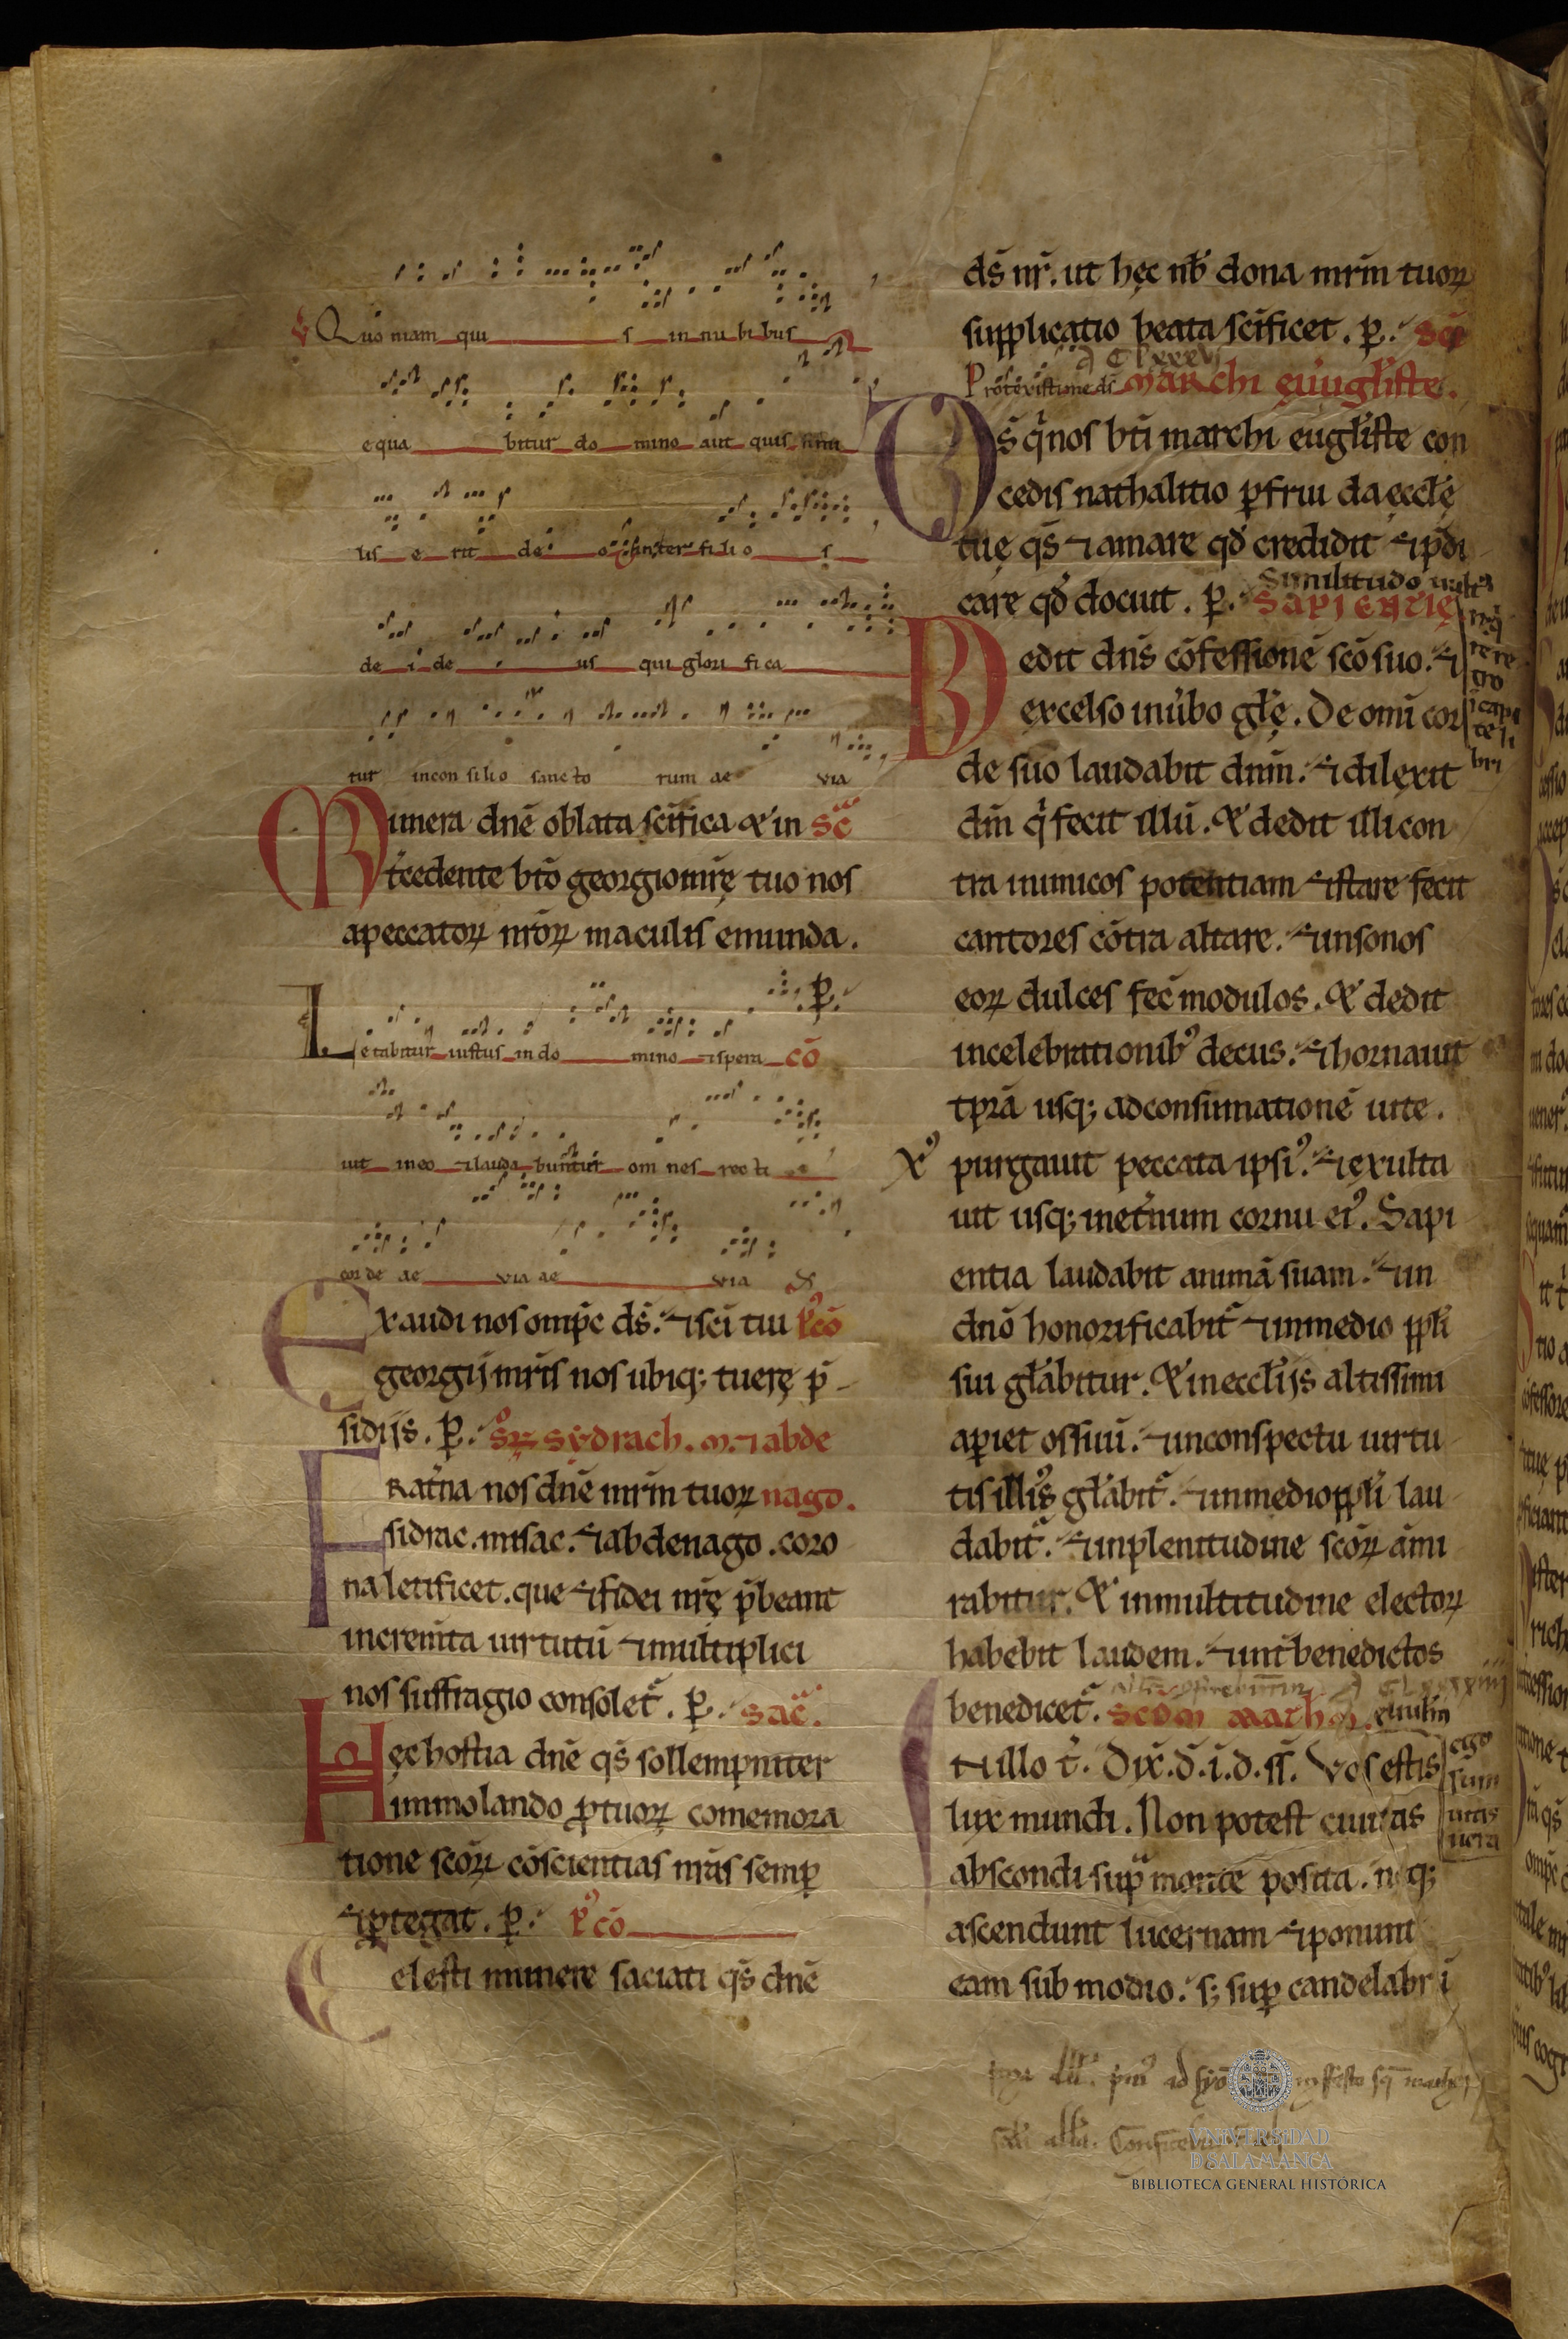 Quo niam qui s in nu bi bus
equa bitur do mino aut quis simi
lis e rit de o inter fi li o s
de i de us qui glori fi ca
tur incon si lio sanc to rum ae via
Munera dn̄e oblata sc̄ifica & in Sēc
t̄cedente bt̄o georgio mr̄ę tuo nos
apeccatoꝝ nr̄oꝝ maculis emunda.
Ꝑ.
Letabitur iustus in do mino & spera cō
uit in eo & lauda buntur om nes rec ti
cor de ae via ae via
Exaudi nos om̄pc dš. & sc̄i tui Pꝰcō
georgij mr̄is nos ubiqꝫ tuerę p̄
sidijs. Ꝑ. Sꝝ sydrach. m. & abde
Frat̄na nos dn̄e mr̄m tuoꝝ nago.
sidrac. misac. & abdenago. coro
na letificet. que & fidei nr̄ę p̄beant
increm̄ta uirtutū & multiplici
nos suffragio consolet̄. Ꝑ. Sac̄.
Hęc hostia dn̄e qš sollempniter
immolando ꝓ tuoꝝ comemora
tione sc̄oꝝ cōscientias nr̄as semꝑ
& ꝓtegat. Ꝑ. Pꝰcō
Celesti munere saciati qš dn̄e
dš nr̄. ut hęc nb̄ dona mr̄m tuoꝝ
supplicatio beata sc̄ificet. Ꝑ. Sc̄i
Protexisti me dš Marchi eųugl̄iste.
Dš q̄ nos bt̄i marchi eugl̄iste con
cedis nathalitio ꝑfrui da eccl̄ę
tuę qš & amare qd̄ credidit & p̄di
care qd̄ docuit. Ꝑ. Sapientię
Similitudo uult
Dedit dn̄s cōfessionē sc̄o suo. &
excelso inūbo gl̄ę. De om̄i cor
de suo laudabit dn̄m. & dilexit
dm̄ q̄ fecit illū. & dedit illi con
tra inimicos potentiam & stare fecit
cantores cōtra altare. & in sonos
eoꝝ dulces fec̄ modulos. & dedit
in celebrationibꝰ decus. & hornauit
tp̄rā usqꝫ ad consumationē uite.
Xꝰ purgauit peccata ipsiꝰ. & exulta
uit usqꝫ inet̄num cornu eiꝰ. Sapi
entia laudabit animā suam. & in
dn̄o honorificabit̄ & in medio ppl̄i
sui gl̄abitur. & in eccl̄ijs altissimi
aꝑiet os suū. & in conspectu uirtu
tis illiꝰ gl̄abit̄. & in medio ppl̄i lau
dabit̄. & in plenitudine sc̄oꝝ ami
rabitur. & in multitudine electoꝝ
habebit laudem. & int̄ benedictos
benedicet̄. Scdm mathm. euuḡlm
In illo t̄. Dix̄. d̄. i. d. sš. Vos estis
ego sum uitis uera
lux mundi. Non potest ciuitas
abscondi suꝑ monte posita. neqꝫ
ascendunt lucernam & ponunt
eam sub modio. sꝫ suꝑ candelabrū
VNIVERSIDAD
D SALAMANCA
BIBLIOTECA GENERAL HISTÓRICA